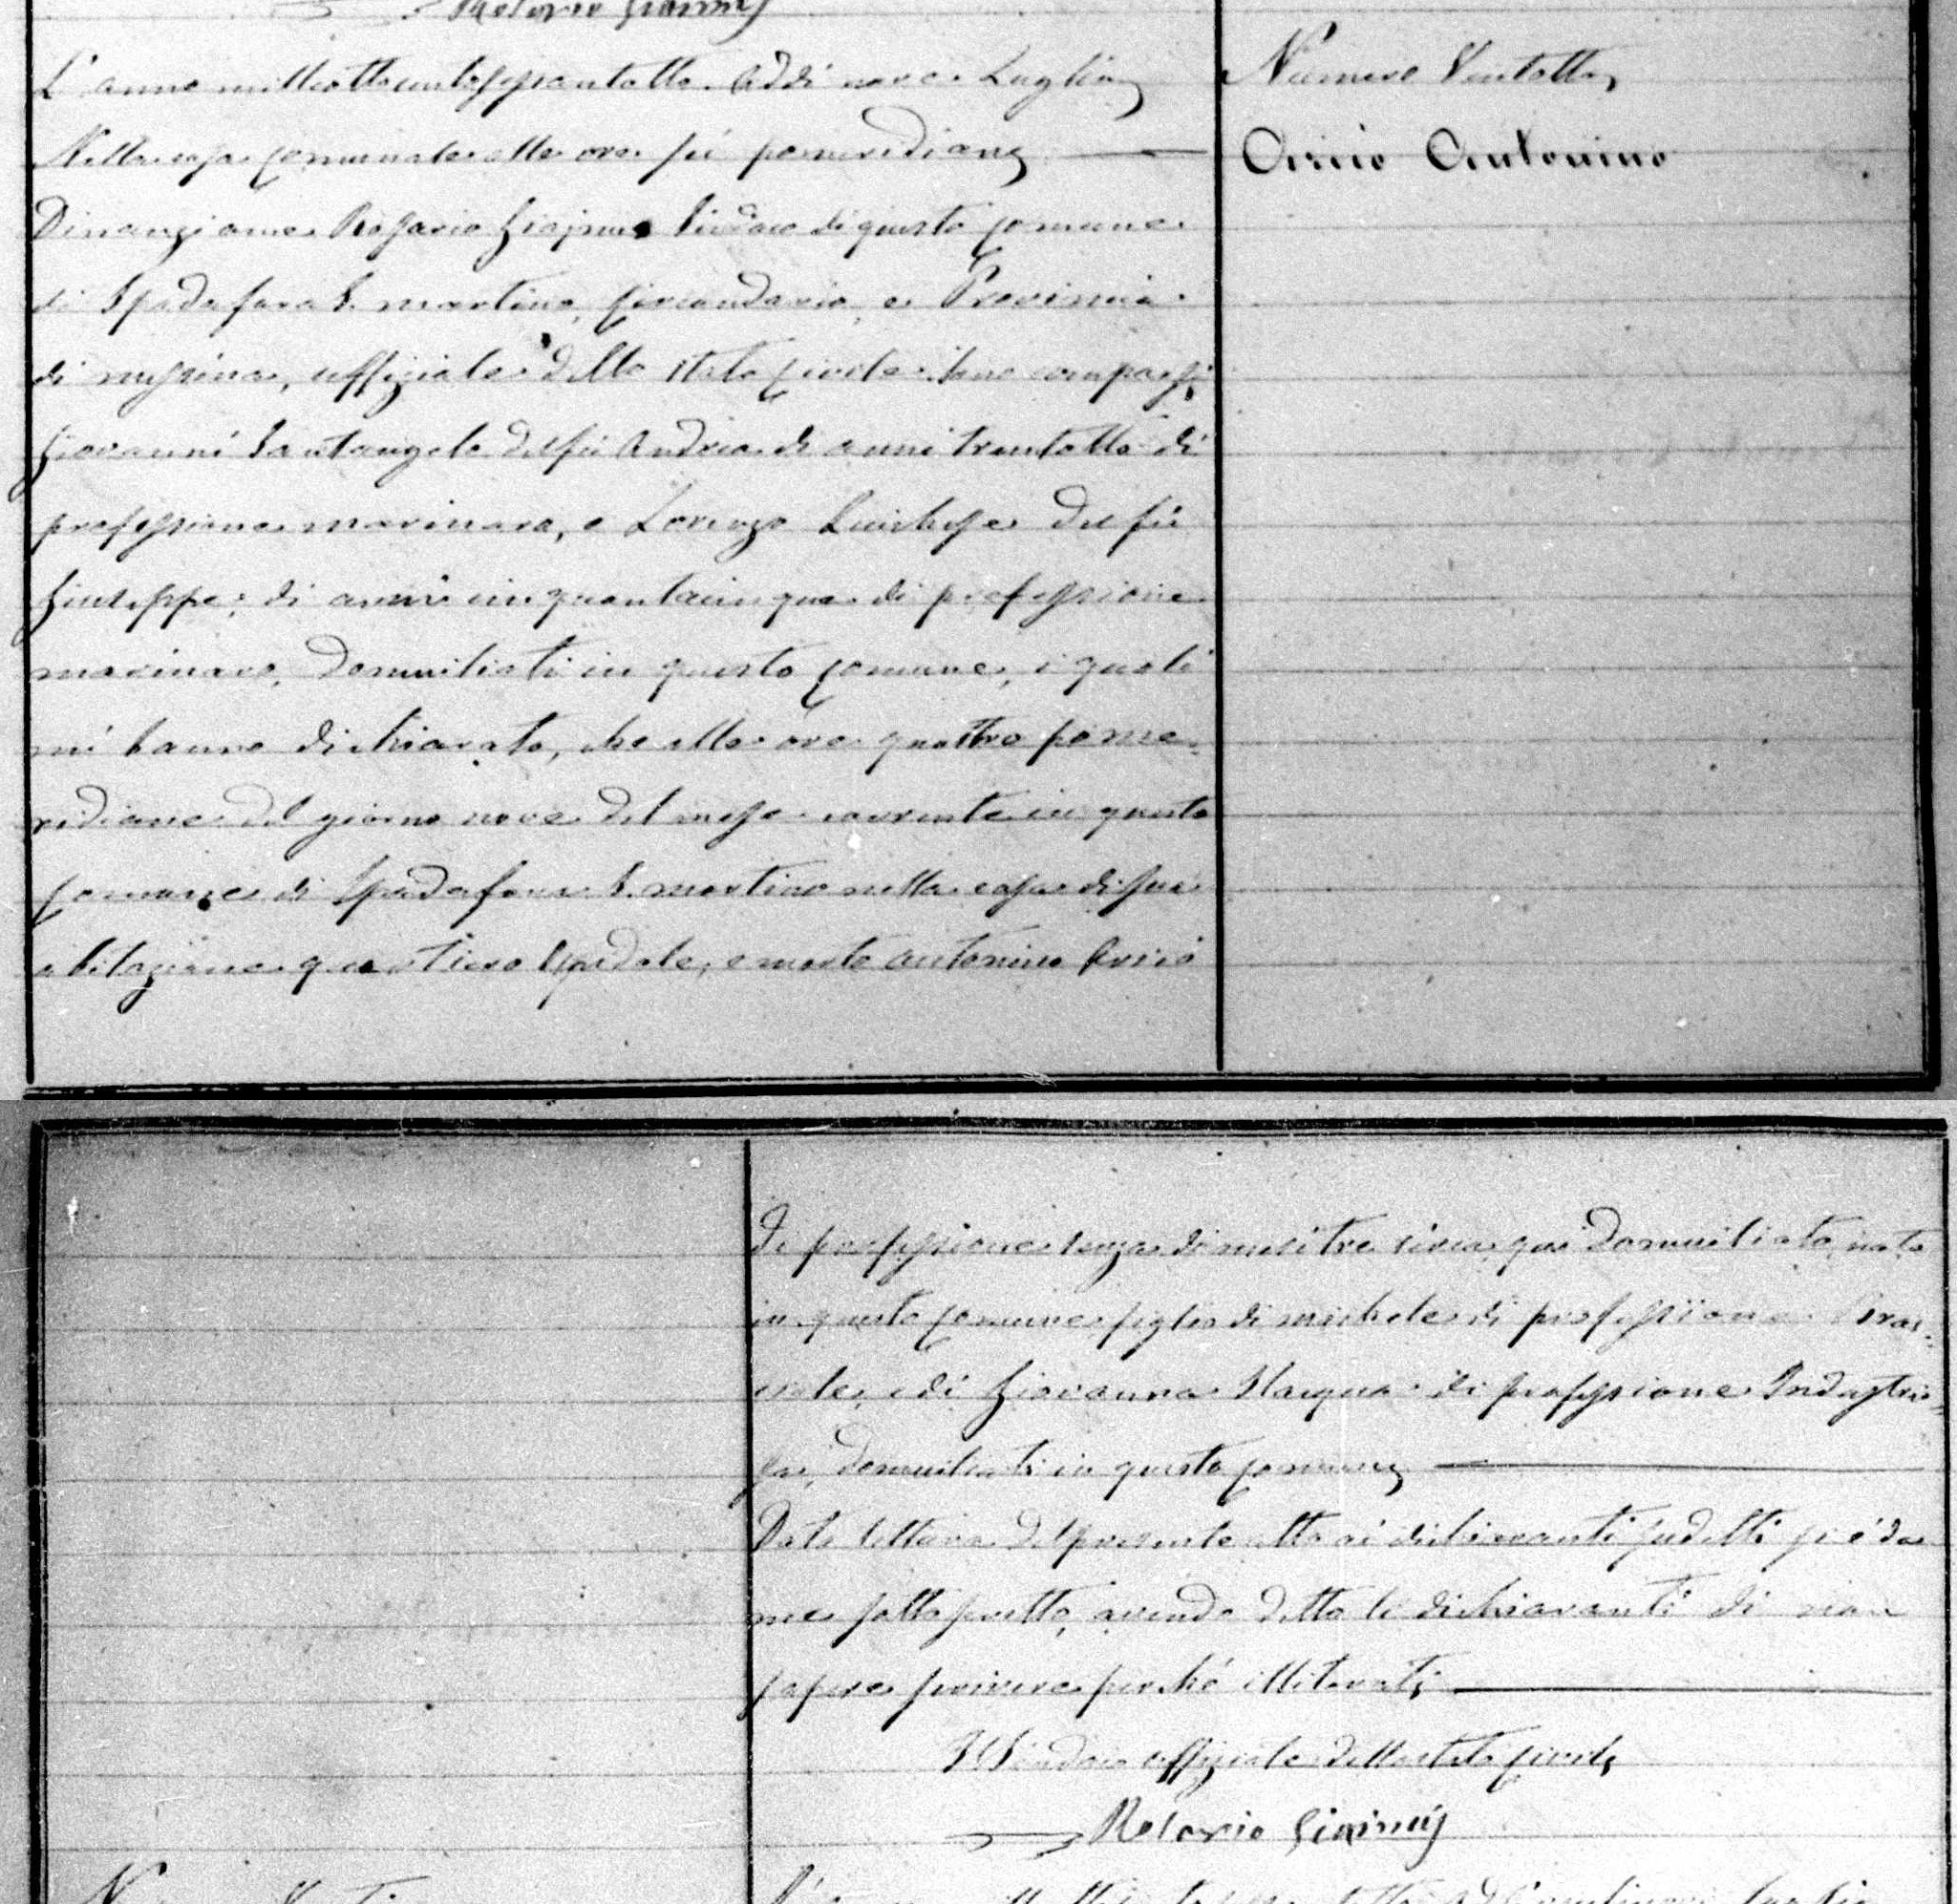 Rosario Giaimis
L'anno milleottocentosessantotto. Addì nove Luglio
Nella casa comunale alle ore sei pomeridiane
Dinanzi a me Rosario Sindaco di questo comune
di Spadafora S. martino, circondario, e Provincia
di messina, uffiziale dello stato civile sono comparsi
Giovanni Santangelo del fù Andrea di anni trentotto di
professione marinaro, e Lorenzo del fù
Giuseppe; di anni cinquantacinque di professione
marinaro, domiciliati in questo comune, i quali
mi hanno dichiarato, che alle ore quattro pome-
ridiane del giorno nove del mese corrente in questo
comune di Spadafora S. martino nella casa di sua
abitazione quartiero Spedale, è morto antonino Aricò
Numero Ventotto
Aricò Antonino
di professione senza di mesi tre circa, qui domiciliato, nato
in questo comune figlio di michele di professione Brac-
ciale, e di Giovanna di professione Industrio-
sa, domiciliati in questo comune
Data lettura del presente atto ai dichiaranti sudetti si è da
me sottoscritto, avendo detto li dichiaranti di non
sapere scrivere perché illiterati
Il Sindaco uffiziale dello stato civile
Rosario Giaimis